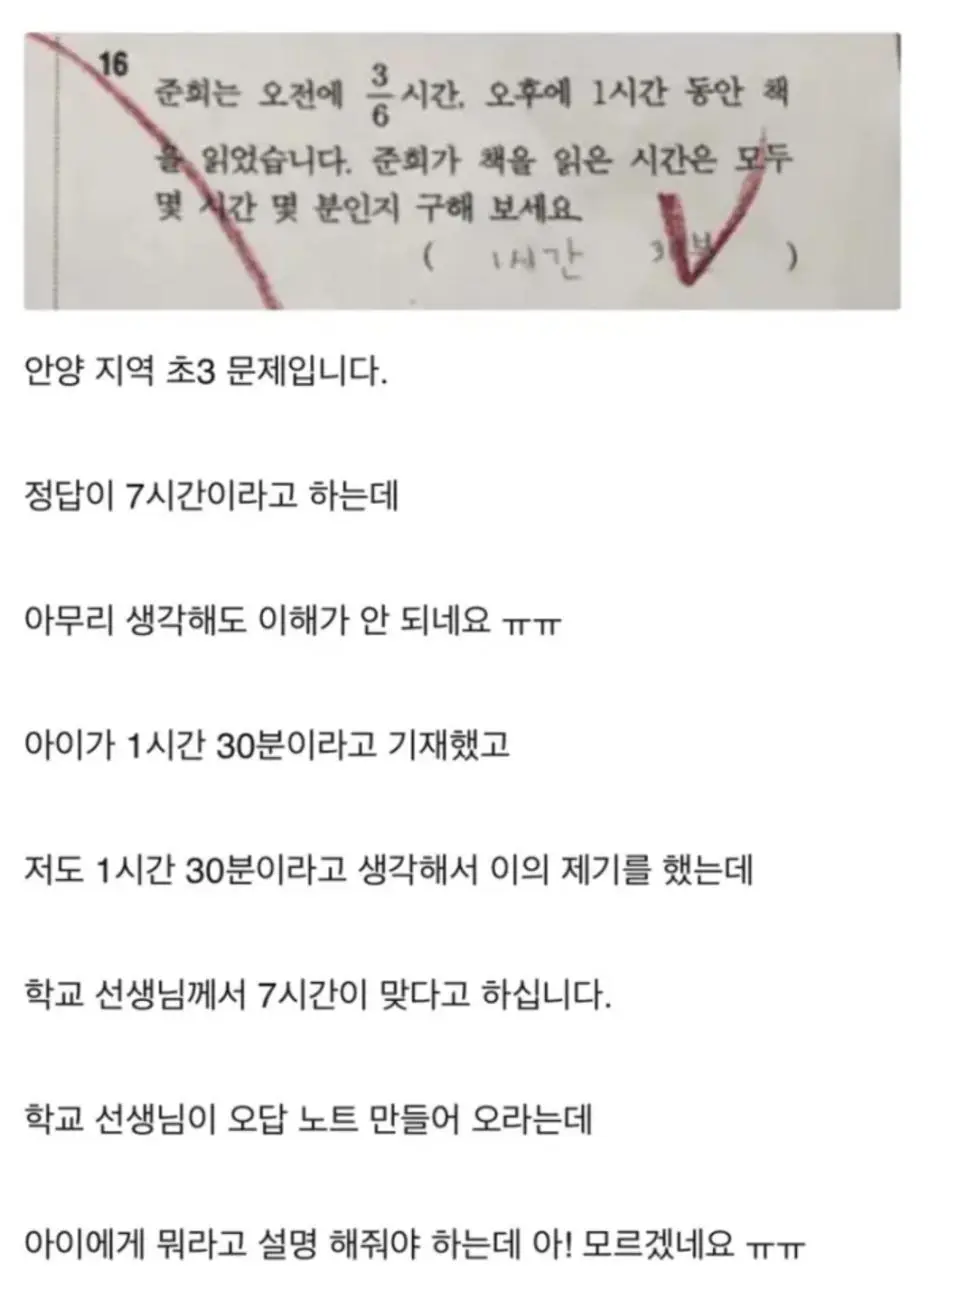 16
준희는 오전에 3/6 시간, 오후에 1시간 동안 책
을 읽었습니다. 준희가 책을 읽은 시간은 모두
몇 시간 몇 분인지 구해 보세요.
( 1시간 )
안양 지역 초3 문제입니다.
정답이 7시간이라고 하는데
아무리 생각해도 이해가 안 되네요 ㅠㅠ
아이가 1시간 30분이라고 기재했고
저도 1시간 30분이라고 생각해서 이의 제기를 했는데
학교 선생님께서 7시간이 맞다고 하십니다.
학교 선생님이 오답 노트 만들어 오라는데
아이에게 뭐라고 설명 해줘야 하는데 아! 모르겠네요 ㅠㅠ